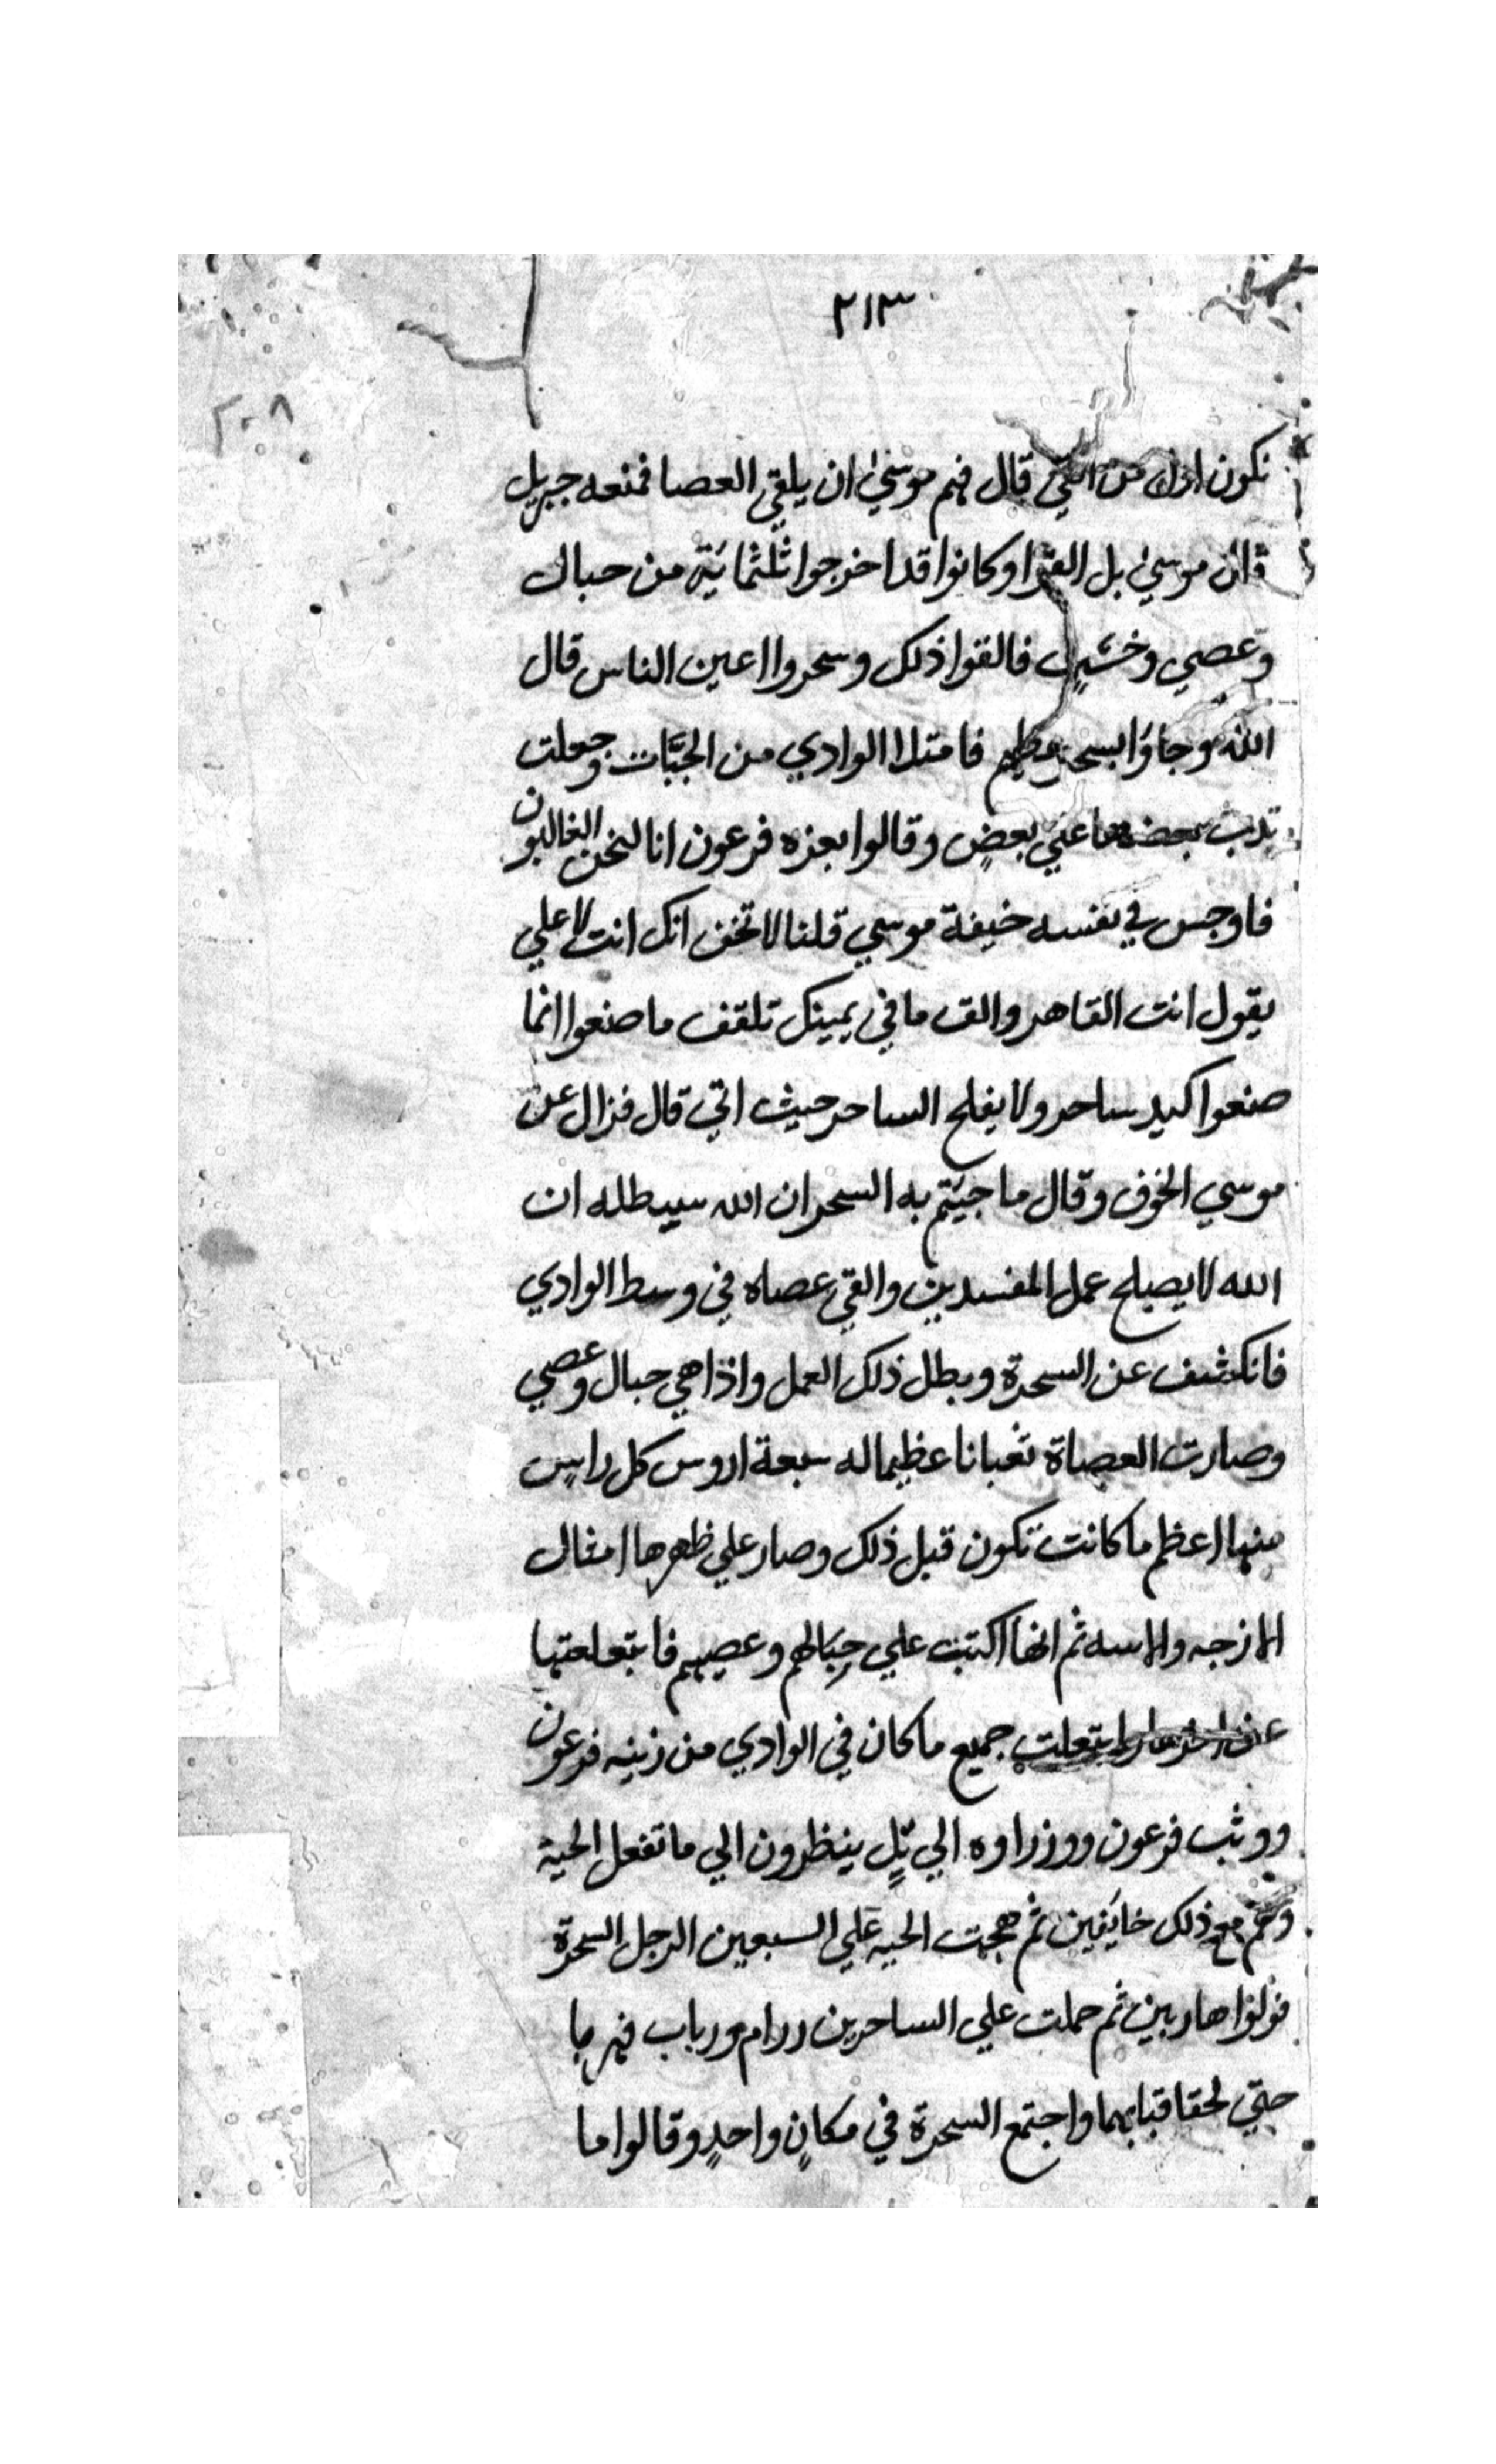 ٢١٣
٢٠٨
نكون اول من القي قال فهم موسيٰ ان يلقي العصا فمنعه جبريل
قال موسيٰ بل القوا وكانوا قد اخرجوا ثلثمائية من حبال
وعصي وخشب فالقوا ذلك وسحروا اعين الناس قال
الله وجاؤا بسحر عظيم فامتلا الوادي من الجبّات وجعلت
تدب بعضها علي بعضٍ وقالوا بعزه فرعون انا لنحن الغالبون
فاوجس في نفسه خيفة موسي قلنا لا تخف انك انت لاعلي
يقول انت القاهر والق ما في يمينك تلقف ما صنعوا انما
صنعوا كيد ساحر ولا يفلح الساحر حيث اتي قال فزال عن
موسي الخوف وقال ما جيتم به السحر ان الله سيبطله ان
الله لا يصلح عمل المفسدين والقي عصاه في وسط الوادي
فانكشف عن السحرة وبطل ذلك العمل واذا هي حبال وعصي
وصارت العصاة ثعبانا عظيما له سبعة اروس كل راسٍ
منها اعظم ما كانت تكون قبل ذلك وصار علي ظهرها امثال
الازجه والاسه ثم انها اكتبت علي حِبَالهم وعصيهم فابتعلعتها
عن اخرها وابتعلت جميع ما كان في الوادي من زينه فرعون
ووثب فرعون ووزراوه الي تلٍ ينظرون الي ما تفعل الحية
وهم مع ذلك خايَفين ثم هجمت الحيه علي السبعين الرجل السحرة
فولوا هاربين ثم حملت علي الساحرين ررام ورباب فهربا
حتي لحقا قبابهما واجتمع السحرة في مكانٍ واحدٍ وقالوا ما